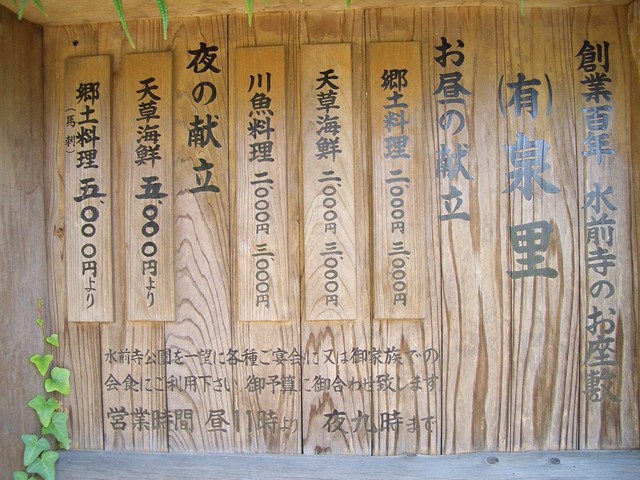 創業百年 水前寺のお座敷
(有)泉里
お昼の献立
郷土料理 二、〇〇〇円 三、〇〇〇円
天草海鮮 二、〇〇〇円 三、〇〇〇円
川魚料理 二、〇〇〇円 三、〇〇〇円
夜の献立
天草海鮮 五、〇〇〇円より
郷土料理(馬刺) 五、〇〇〇円より
水前寺公園を一望に各種ご宴会に又は御家族での
会食にご利用下さい 御予算に御合わせ致します
営業時間 昼11時より 夜九時まで